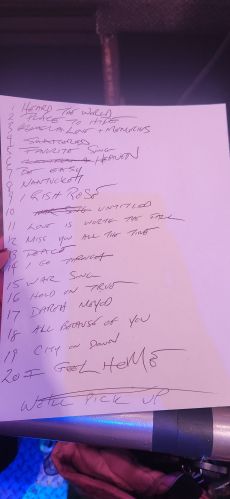 1 HEARD THE WORLD
2 PLACE TO HIDE
3 BLACK LOVE + MEMORIES
4 SHATTERED
5 FAVORITE SONG
6 HEAVEN
7 BE EASY
8 NANTUCKET
9 IRISH ROSE
10 WAR SONG UNTITLED
11 LOVE IS WORTH THE FALL
12 MISS YOU ALL THE TIME
13 PEACE
14 I GO THROUGH
15 WAR SONG
16 HOLD ON TRUE
17 DARETH NAYOD
18 ALL BECAUSE OF YOU
19 CITY ON DOWN
20 I FEEL HOME
WE'LL PICK UP